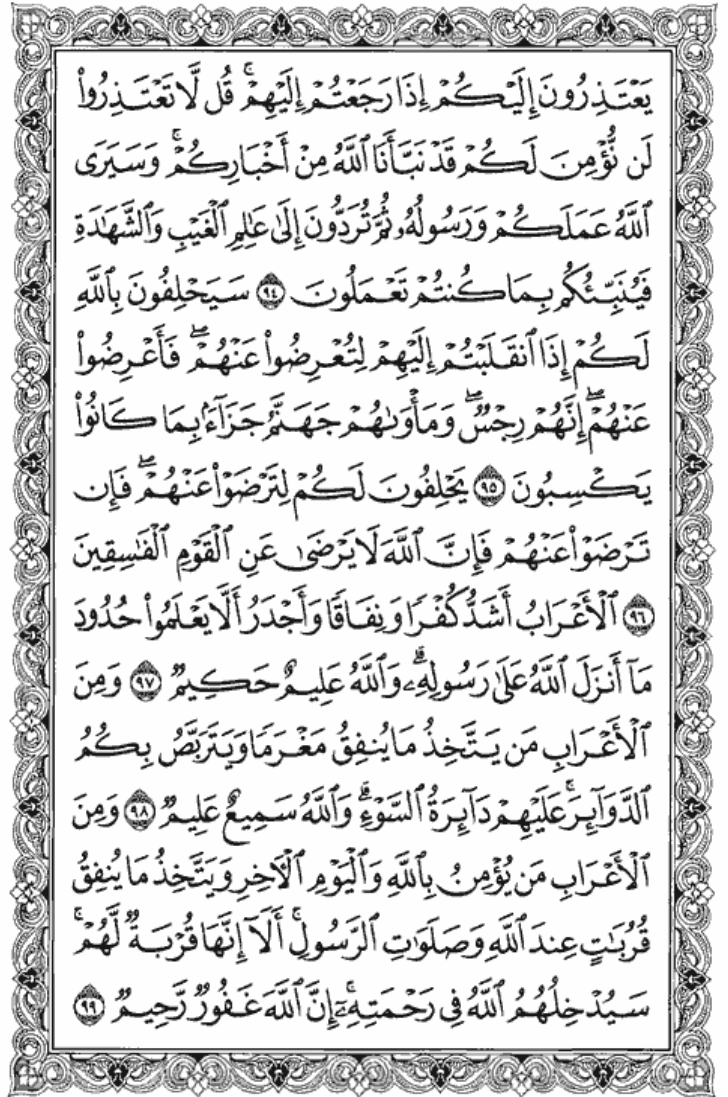 يَعْتَذِرُونَ إِلَيْكُمْ إِذَا رَجَعْتُمْ إِلَيْهِمْ ۚ قُل لَّا تَعْتَذِرُوا۟
لَن نُّؤْمِنَ لَكُمْ قَدْ نَبَّأَنَا ٱللَّهُ مِنْ أَخْبَارِكُمْ ۚ وَسَيَرَى
ٱللَّهُ عَمَلَكُمْ وَرَسُولُهُۥ ثُمَّ تُرَدُّونَ إِلَىٰ عَـٰلِمِ ٱلْغَيْبِ وَٱلشَّهَـٰدَةِ
فَيُنَبِّئُكُم بِمَا كُنتُمْ تَعْمَلُونَ ٩٤ سَيَحْلِفُونَ بِٱللَّهِ
لَكُمْ إِذَا ٱنقَلَبْتُمْ إِلَيْهِمْ لِتُعْرِضُوا۟ عَنْهُمْ ۖ فَأَعْرِضُوا۟
عَنْهُمْ ۖ إِنَّهُمْ رِجْسٌ ۖ وَمَأْوَىٰهُمْ جَهَنَّمُ جَزَآءًۢ بِمَا كَانُوا۟
يَكْسِبُونَ ٩٥ يَحْلِفُونَ لَكُمْ لِتَرْضَوْا۟ عَنْهُمْ ۖ فَإِن
تَرْضَوْا۟ عَنْهُمْ فَإِنَّ ٱللَّهَ لَا يَرْضَىٰ عَنِ ٱلْقَوْمِ ٱلْفَـٰسِقِينَ
٩٦ ٱلْأَعْرَابُ أَشَدُّ كُفْرًا وَنِفَاقًا وَأَجْدَرُ أَلَّا يَعْلَمُوا۟ حُدُودَ
مَآ أَنزَلَ ٱللَّهُ عَلَىٰ رَسُولِهِۦ ۗ وَٱللَّهُ عَلِيمٌ حَكِيمٌ ٩٧ وَمِنَ
ٱلْأَعْرَابِ مَن يَتَّخِذُ مَا يُنفِقُ مَغْرَمًا وَيَتَرَبَّصُ بِكُمُ
ٱلدَّوَآئِرَ ۚ عَلَيْهِمْ دَآئِرَةُ ٱلسَّوْءِ ۗ وَٱللَّهُ سَمِيعٌ عَلِيمٌ ٩٨ وَمِنَ
ٱلْأَعْرَابِ مَن يُؤْمِنُ بِٱللَّهِ وَٱلْيَوْمِ ٱلْـَٔاخِرِ وَيَتَّخِذُ مَا يُنفِقُ
قُرُبَـٰتٍ عِندَ ٱللَّهِ وَصَلَوَٰتِ ٱلرَّسُولِ ۚ أَلَآ إِنَّهَا قُرْبَةٌ لَّهُمْ ۚ
سَيُدْخِلُهُمُ ٱللَّهُ فِى رَحْمَتِهِۦٓ ۗ إِنَّ ٱللَّهَ غَفُورٌ رَّحِيمٌ ٩٩